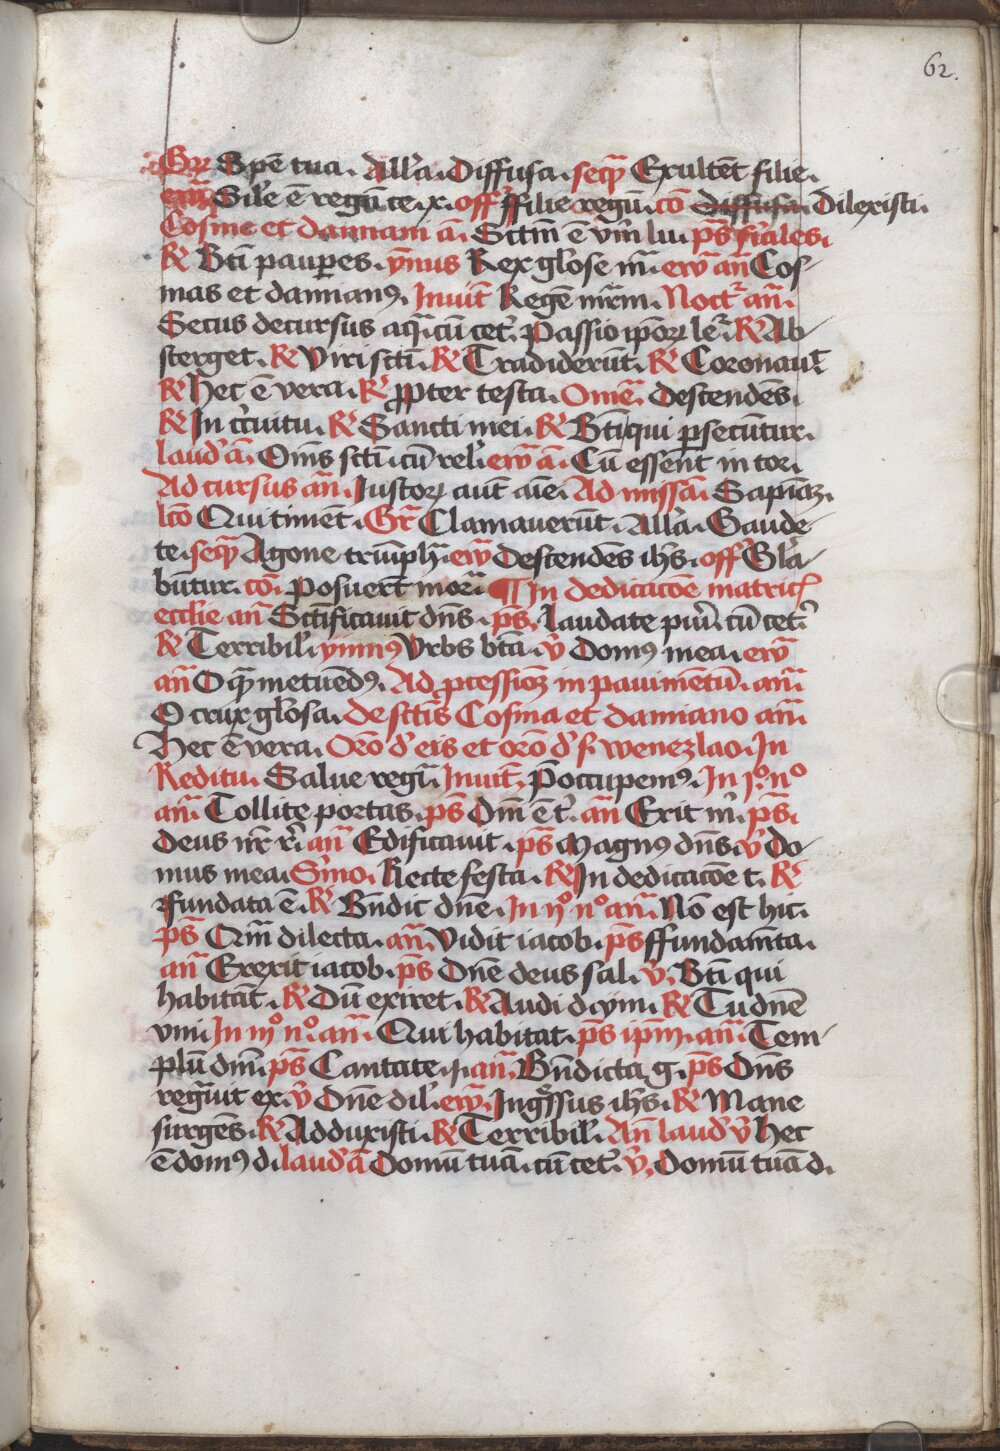 62.
Gr̄ Spē tua. Allā. Diffusa. seq̄ Exultēt filie.
ew̄ Sił'e ē regnū ce. x. off̄ ffilie regū. cō Dilexisti.
Cosme et damiani ā. Sctm̄ ē vm̄ lu. ps̄ fīales.
℟ Bt̄i paup̄es. ymnus Rex gl̓ose m̄. ew̄ an̄ Cos-
mas et damianꝰ. Inuit̄ Regē mr̄m. Noct̄. an̄.
Secus decursus aq̄. cū cet̓. Passio ip̄oꝝ le̓. ℟ Ab-
sterget. ℟ Viri sctī. ℟ Tradiderūt. ℟ Coronauit̄
℟ hec ē vera. ℟ ꝓpter testa. Omē. Descendēs.
℟ In c̓cuitu. ℟ Sancti mei. ℟ Bt̄i qui ꝑsecūtur.
laud̓ ā. Om̄s sctī. cū rel̓. ew̄ ā. Cū essent in tor.
Ad cursus an̄. Iustoꝝ aut̄ aīe. Ad missā. Sapīaꝫ.
lc̄o Qui timēt. Gr̄ Clamauerūt. Allā. Gaude-
te. seq̄ Agone triūph̄. ew̄ Descendēs ih̄s. off̄ Gl̓a-
būtur. cō. Posuer̄t mor̄. ¶ In dedicacōe matric̄
ecclie an̄ Sct̄ificauit dn̄s. ps̄. Laudate pu̓i. cū cet̓.
℟ Terribil̓. ymnꝰ Vrbs bt̄a. v̄ Domꝰ mea. ew̄
an̄ O q̄ metuēdꝰ. Ad ꝓcessioꝫ in pauimētū. an̄.
O crux gl̓osa. de sctīs Cosma et damiano an̄
Hec ē vera. Orō d̓ eis et orō d̓ s. wenezlao. In
Reditu. Salue regīa. Inuit̄. P̄occupemꝰ. In jº. nº
an̄. Tollite portas. ps̄ Dn̄i ē t̓. an̄ Erit m̓. ps̄.
deus nr̄ r̓. an̄ Edificauit. ps̄ Magnꝰ dn̄s. v̄ Do-
mus mea. S̓mo. Recte festa. ℟ In dedicacōe t. ℟
ffundata ē. ℟ Bn̄dic dn̄e. In ijº nº an̄. Nō est hic.
ps̄ Qm̄ dilecta. an̄. Vidit iacob. ps̄ ffundam̄ta.
an̄ Erexit iacob. ps̄ Dn̄e deus sal. v̄. Bt̄i qui
habitāt. ℟ Dū exiret. ℟ Audi d ym. ℟ Tu dn̄e
vni In iijº nº. an̄. Qui habitat. ps̄ ip̄m. an̄. Tem-
plū dn̄i. ps̄ Cantate. j. an̄. Bn̄dicta g. ps̄ Dn̄s
regn̄uit ex. v̄ Dn̄e dil̓. ew̄. Ingr̄ssus ih̄s. ℟ Mane
surgēs. ℟ Adduxisti. ℟ Terribil̓. An̄ laud̓ v̄ hec
ē domꝰ d. laud̓ ā Domū tuā. cū cet̓. v̄. Domū tuā d.